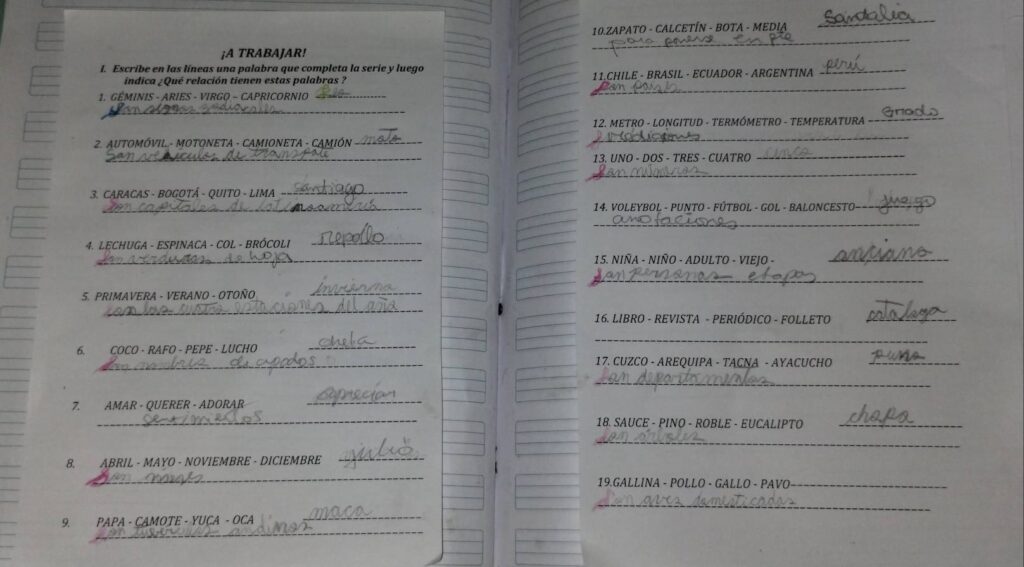 ¡A TRABAJAR!
I. Escribe en las líneas una palabra que completa la serie y luego
indica ¿Qué relación tienen estas palabras ?
1. GÉMINIS - ARIES - VIRGO – CAPRICORNIO Leo
Son signos zodiacales
2. AUTOMÓVIL - MOTONETA - CAMIONETA - CAMIÓN moto
Son de
3. CARACAS - BOGOTÁ - QUITO - LIMA santiago
Son capitales de
4. LECHUGA - ESPINACA - COL - BRÓCOLI repollo
Son verduras de hoja
5. PRIMAVERA - VERANO - OTOÑO invierno
son las estaciones del año
6. COCO - RAFO - PEPE - LUCHO
Son de
7. AMAR - QUERER - ADORAR apreciar
8. ABRIL - MAYO - NOVIEMBRE - DICIEMBRE julio
Son meses
9. PAPA - CAMOTE - YUCA - OCA maca
Son andinos
10.ZAPATO - CALCETÍN - BOTA - MEDIA Sandalia
para ponerse en pie
11.CHILE - BRASIL - ECUADOR - ARGENTINA perú
Son
12. METRO - LONGITUD - TERMÓMETRO - TEMPERATURA grado
13. UNO - DOS - TRES - CUATRO cinco
Son números
14. VOLEYBOL - PUNTO - FÚTBOL - GOL - BALONCESTO juego
anotaciones
15. NIÑA - NIÑO - ADULTO - VIEJO - anciano
Son personas etapas
16. LIBRO - REVISTA - PERIÓDICO - FOLLETO
17. CUZCO - AREQUIPA - TACNA - AYACUCHO puno
Son departamentos
18. SAUCE - PINO - ROBLE - EUCALIPTO chapa
Son árboles
19.GALLINA - POLLO - GALLO - PAVO
Son aves domesticadas